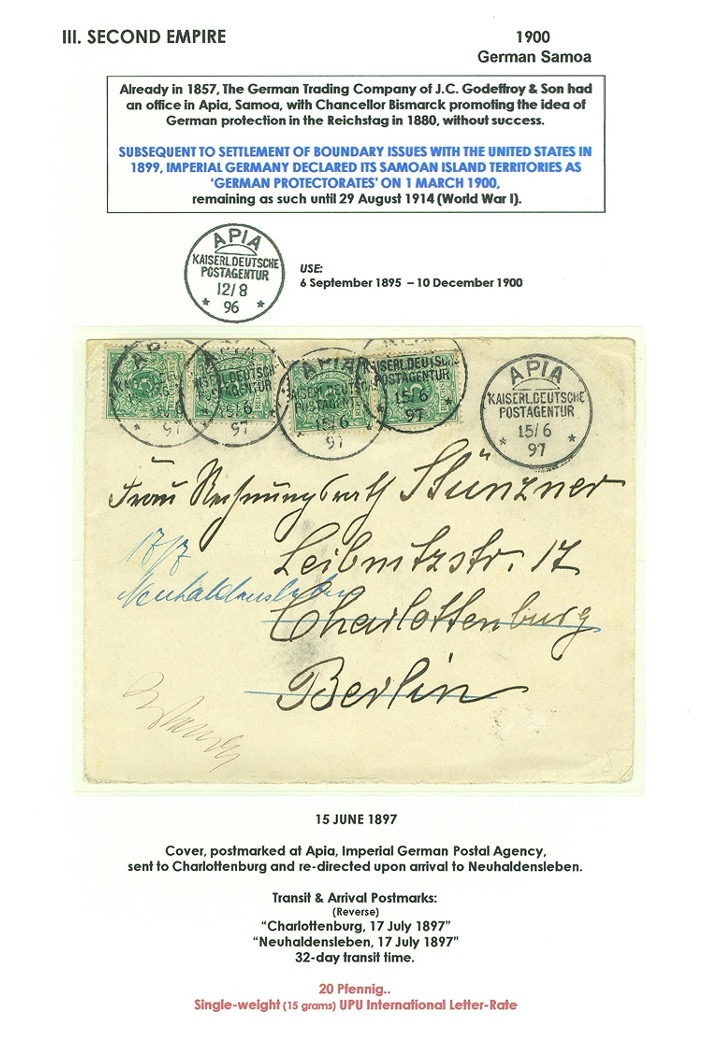 III. SECOND EMPIRE
1900
German Samoa
Already in 1857, The German Trading Company of J.C. Godeffroy & Son had
an office in Apia, Samoa, with Chancellor Bismarck promoting the idea of
German protection in the Reichstag in 1880, without success.
SUBSEQUENT TO SETTLEMENT OF BOUNDARY ISSUES WITH THE UNITED STATES IN
1899, IMPERIAL GERMANY DECLARED ITS SAMOAN ISLAND TERRITORIES AS
‘GERMAN PROTECTORATES’ ON 1 MARCH 1900,
remaining as such until 29 August 1914 (World War I).
APIA
KAISERL.DEUTSCHE
POSTAGENTUR
12/8
* 96 *
USE:
6 September 1895 – 10 December 1900
APIA
KAISERL.DEUTSCHE
POSTAGENTUR
15/6
97
APIA
KAISERL.DEUTSCHE
POSTAGENTUR
15/6
97
KAISERL.DEUTSCHE
POSTAGENTUR
15/6
97
APIA
KAISERL.DEUTSCHE
POSTAGENTUR
15/6
* 97 *
Frau Rechnungsrath Stünzner
Leibnitzstr. 17
17/7
Neuhaldensleben
Charlottenburg
Berlin
15 JUNE 1897
Cover, postmarked at Apia, Imperial German Postal Agency,
sent to Charlottenburg and re-directed upon arrival to Neuhaldensleben.
Transit & Arrival Postmarks:
(Reverse)
“Charlottenburg, 17 July 1897”
“Neuhaldensleben, 17 July 1897”
32-day transit time.
20 Pfennig..
Single-weight (15 grams) UPU International Letter-Rate